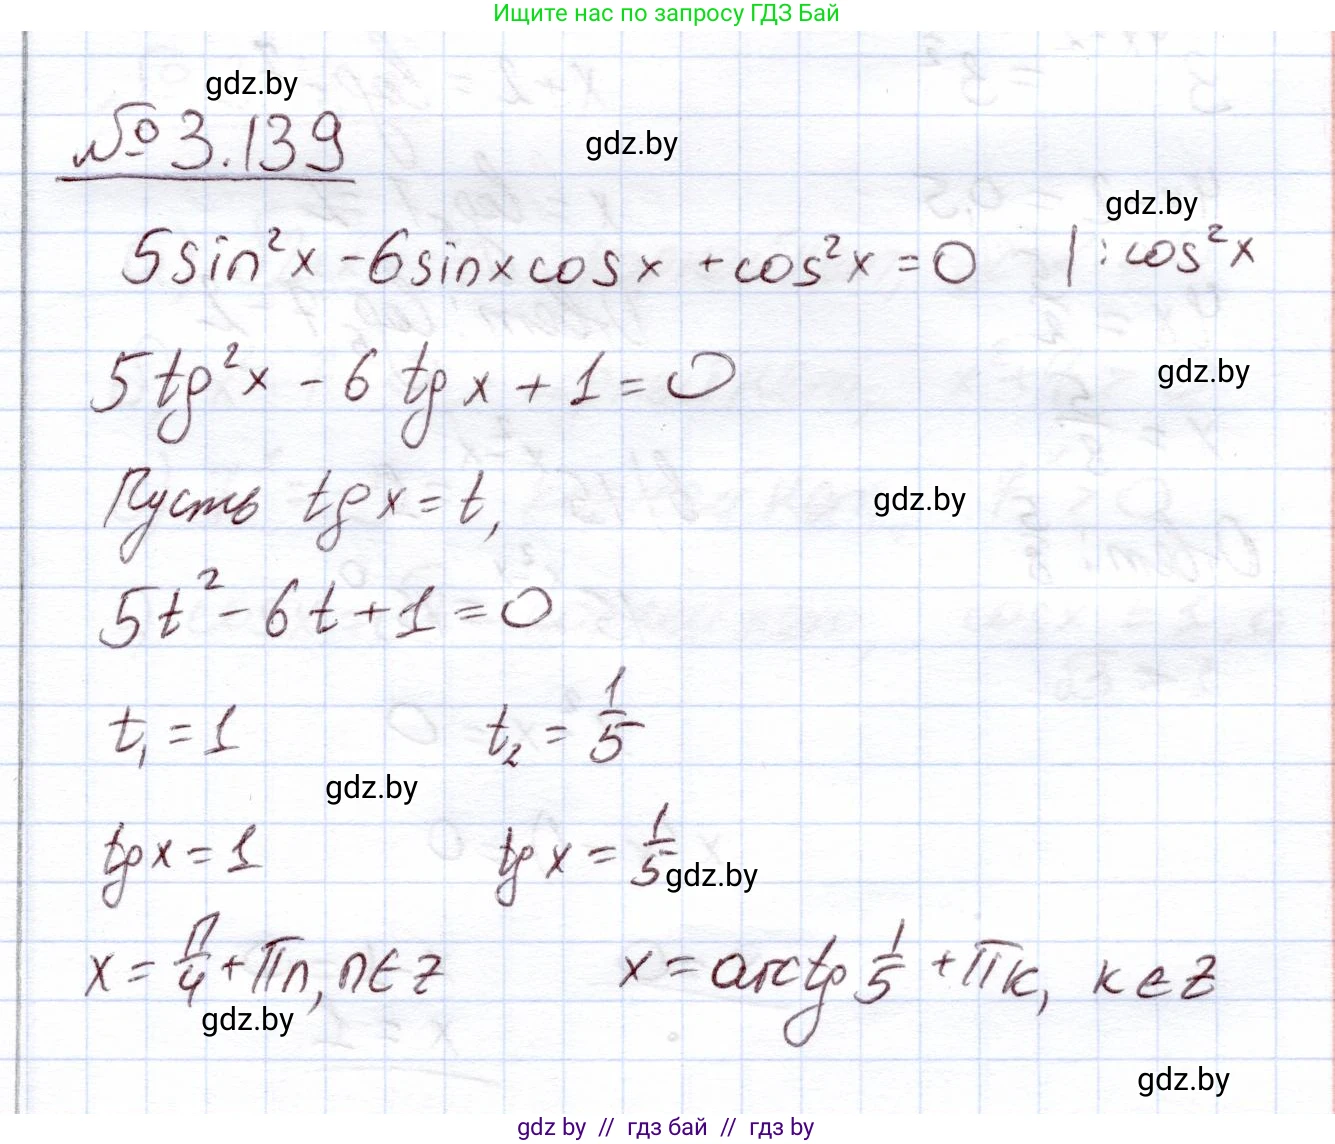 Ищите нас по запросу ГДЗ Бай
gdz.by
№ 3.139
gdz.by
gdz.by
5sin²x - 6sinxcosx + cos²x = 0 | : cos²x
5tg²x - 6tgx + 1 = 0
gdz.by
Пусть tgx = t,
gdz.by
5t² - 6t + 1 = 0
t₁ = 1 t₂ = 1/5
gdz.by
tgx = 1 tgx = 1/5
gdz.by
x = π/4 + πn, n∈Z x = arctg 1/5 + πк, к∈Z
gdz.by
gdz.by
gdz by // гдз бай // гдз by